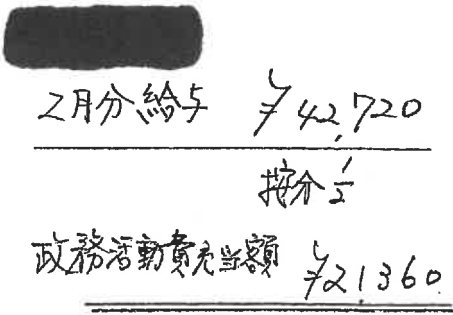 2月分給与 ¥42,720
按分 1/2
政務活動費充当額 ¥21,360